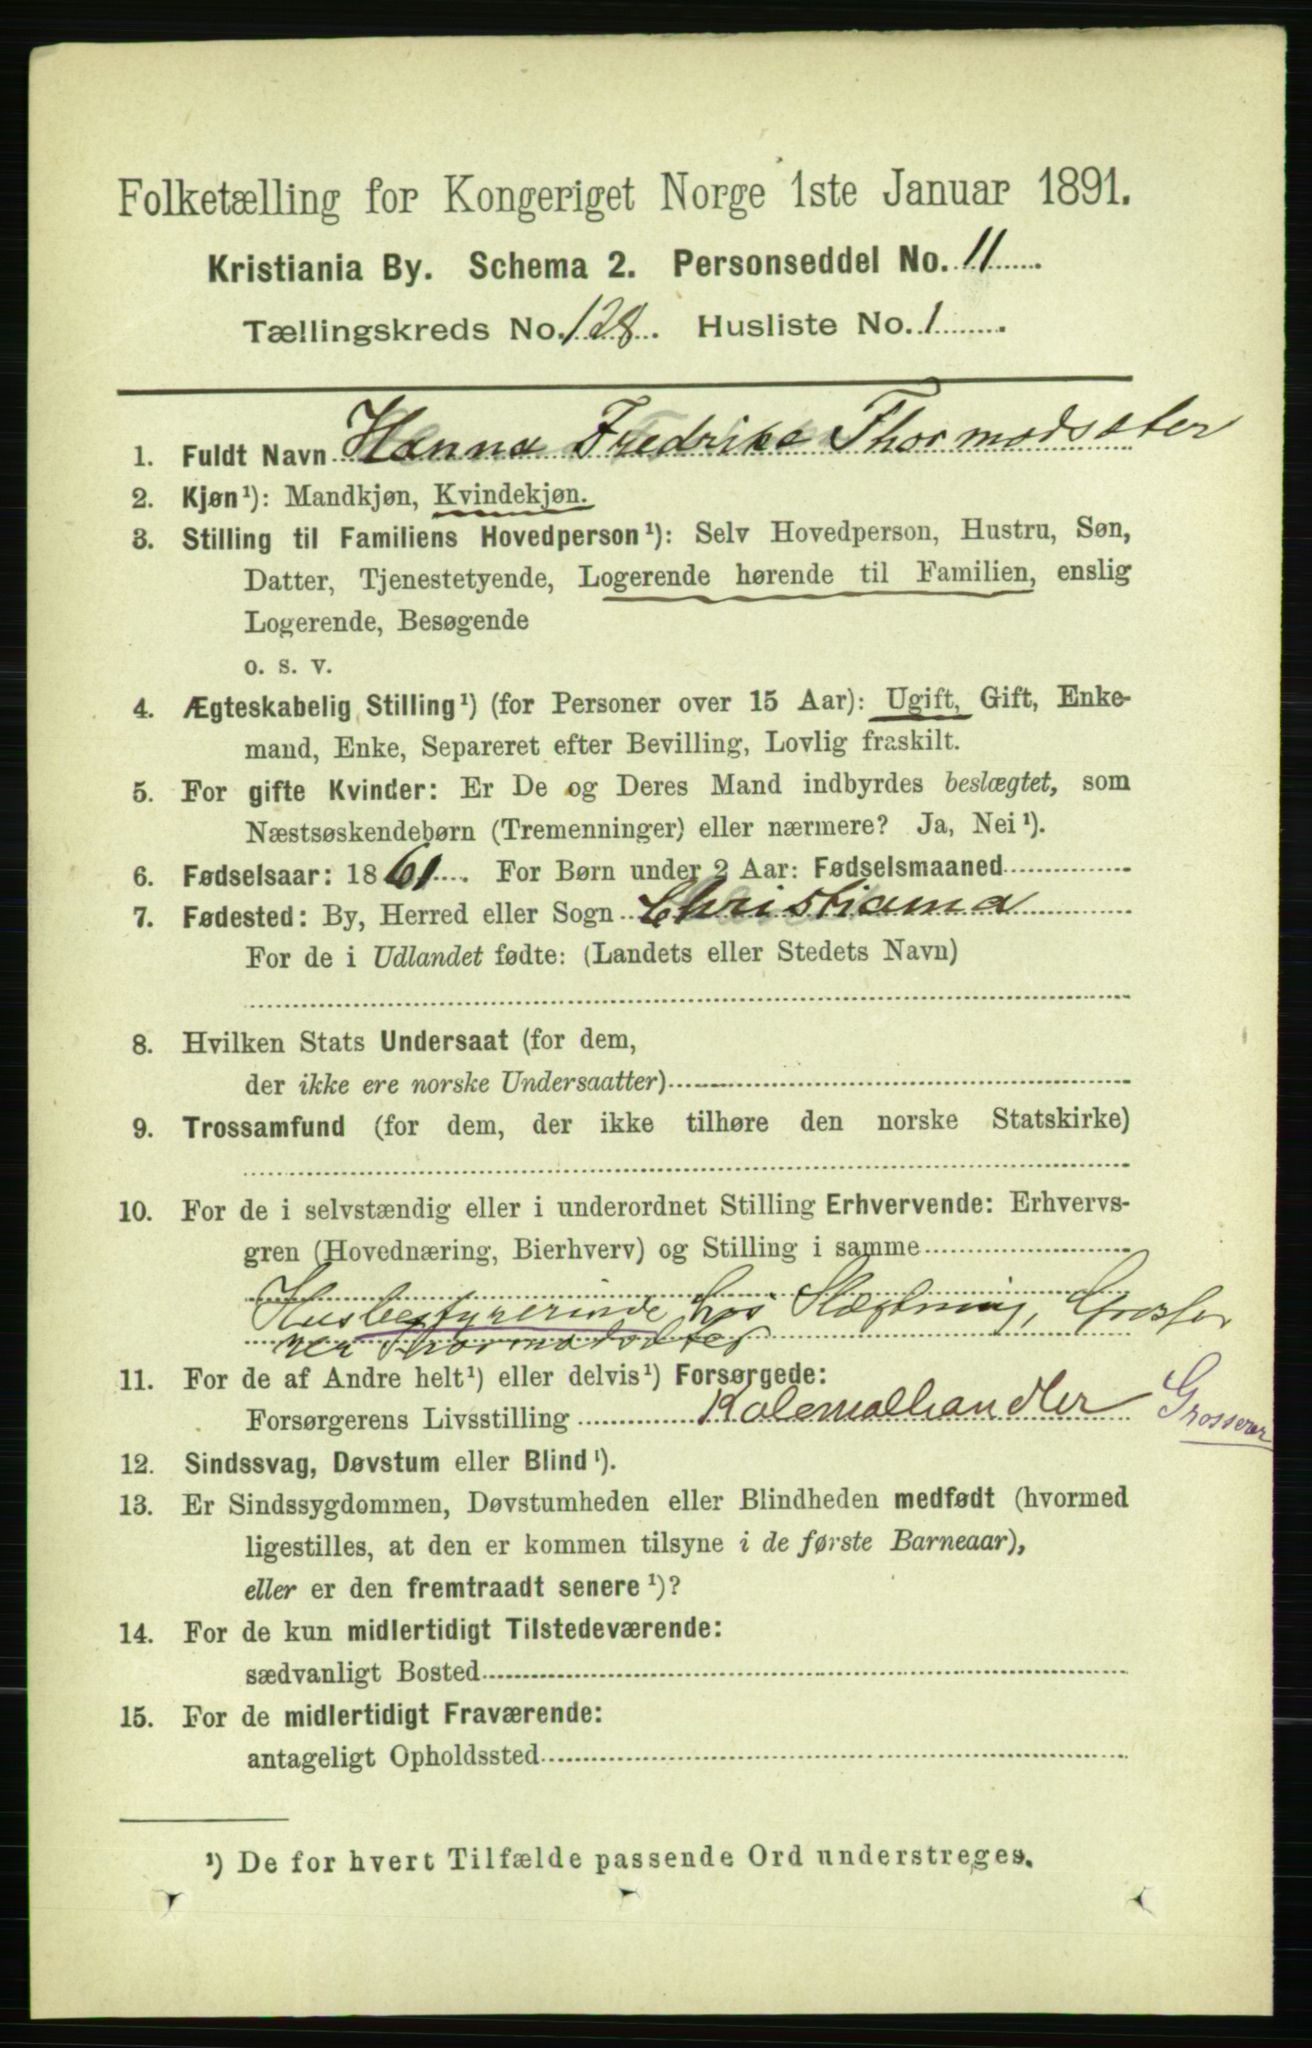 Folketælling for Kongeriget Norge 1ste Januar 1891.
Kristiania By. Schema 2. Personseddel No. 11
Tællingskreds No. 128. Husliste No. 1
1. Fuldt Navn Hanna Fredrike Thormodsæter
2. Kjøn¹): Mandkjøn, Kvindekjøn.
3. Stilling til Familiens Hovedperson¹): Selv Hovedperson, Hustru, Søn,
Datter, Tjenestetyende, Logerende hørende til Familien, enslig
Logerende, Besøgende
o. s. v.
4. Ægteskabelig Stilling¹) (for Personer over 15 Aar): Ugift, Gift, Enke-
mand, Enke, Separeret efter Bevilling, Lovlig fraskilt.
5. For gifte Kvinder: Er De og Deres Mand indbyrdes beslægtet, som
Næstsøskendebørn (Tremenninger) eller nærmere? Ja, Nei¹).
6. Fødselsaar: 1861. For Børn under 2 Aar: Fødselsmaaned
7. Fødested: By, Herred eller Sogn Christiania
For de i Udlandet fødte: (Landets eller Stedets Navn)
8. Hvilken Stats Undersaat (for dem,
der ikke ere norske Undersaatter)
9. Trossamfund (for dem, der ikke tilhøre den norske Statskirke)
10. For de i selvstændig eller i underordnet Stilling Erhvervende: Erhvervs-
gren (Hovednæring, Bierhverv) og Stilling i samme
Husbestyrerinde hos Slægtning, Grosse
rer Thormodsæter
11. For de af Andre helt¹) eller delvis¹) Forsørgede:
Forsørgerens Livsstilling Kolonialhandler Grosserer
12. Sindssvag, Døvstum eller Blind¹).
13. Er Sindssygdommen, Døvstumheden eller Blindheden medfødt (hvormed
ligestilles, at den er kommen tilsyne i de første Barneaar),
eller er den fremtraadt senere¹)?
14. For de kun midlertidigt Tilstedeværende:
sædvanligt Bosted
15. For de midlertidigt Fraværende:
antageligt Opholdssted
¹) De for hvert Tilfælde passende Ord understreges.